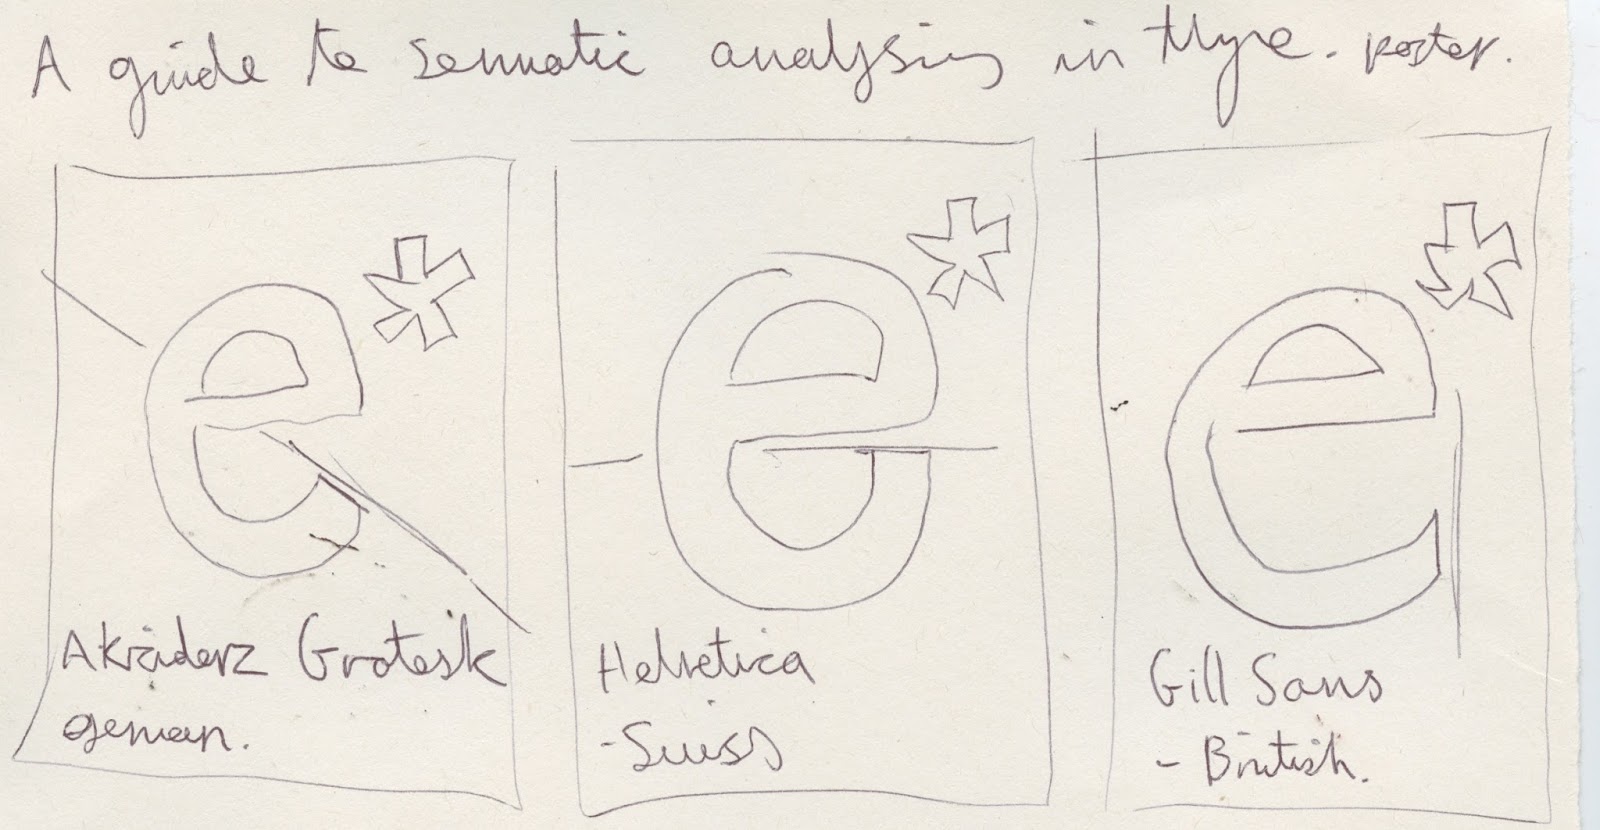 A guide to sematic analysing in poster.
e* e* e*
Akziderz Grotesk
geman.
Helvetica
-Suiss
Gill Sans
- British.